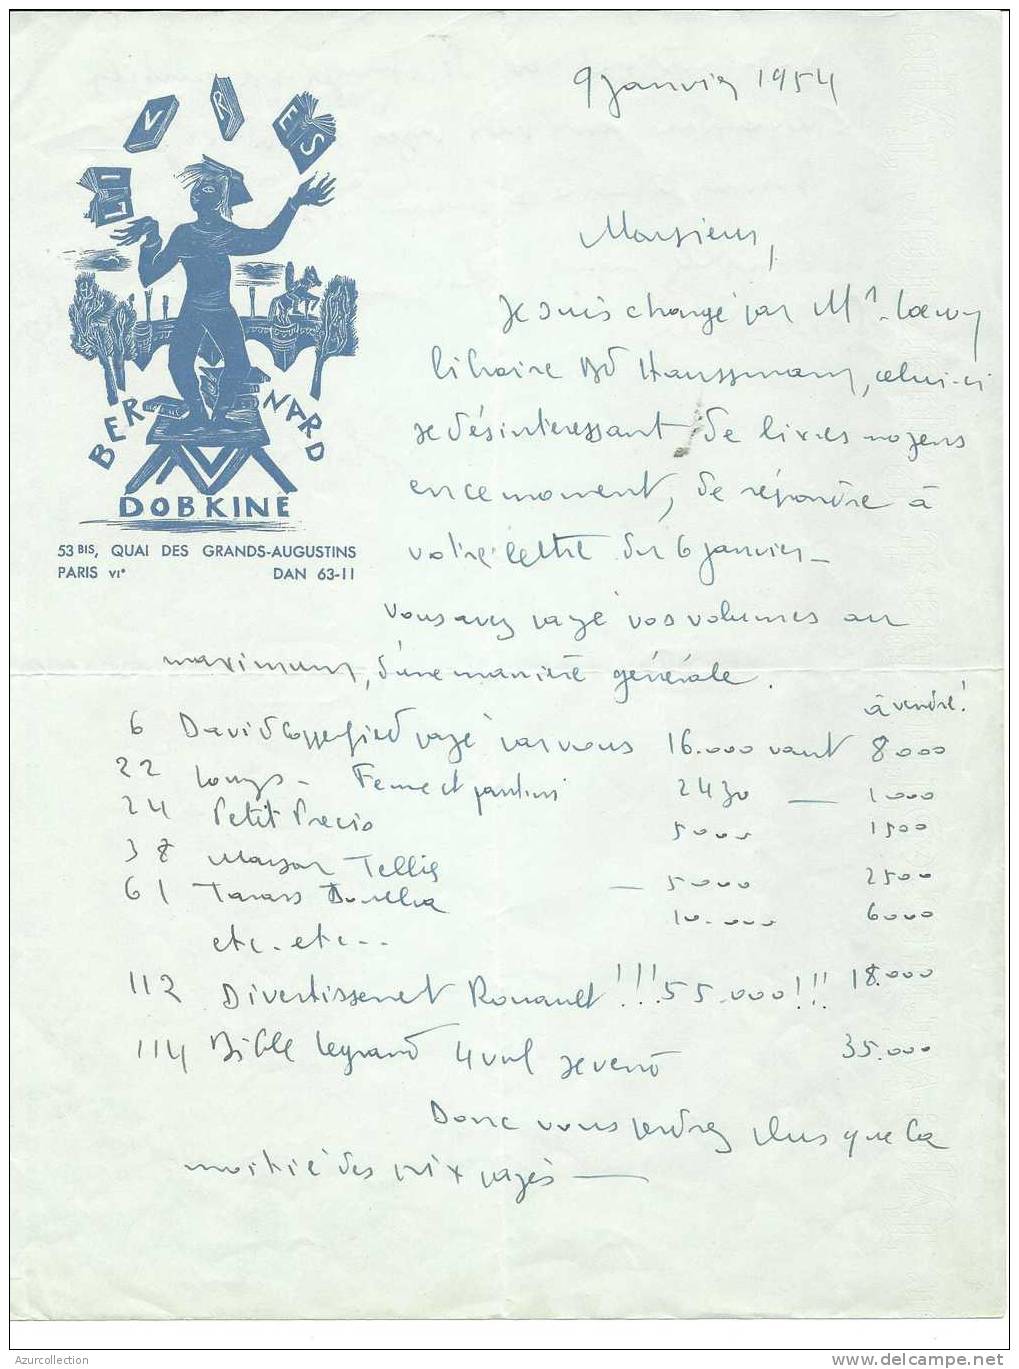 9 janvier 1954
LIVRES
BERNARD
DOBKINE
53 BIS, QUAI DES GRANDS-AUGUSTINS
PARIS VIe DAN 63-11
Monsieur,
Je suis chargé par Mr. Loewy
libraire Bd Haussmann, celui-ci
se désintéressant de livres moyens
en ce moment, de répondre à
votre lettre du 6 janvier —
Vous avez payé vos volumes au
maximum, d'une manière générale.
à vendre!
6 David Copperfield payé par vous 16.000 vaut 8000
22 Longs - Femme et pantin 2430 — 1000
24 Petit Precis 5000 1500
38 Maison Tellier — 5000 2500
61 Tarass Boulba 10.000 6000
etc. etc...
112 Divertissement Rouault!!! 55.000!!! 18.000
114 Bible Legrand 4 vol se vend 35.000
Donc vous perdrez plus que la
moitié des prix payés —
Azurcollection
www.delcampe.net